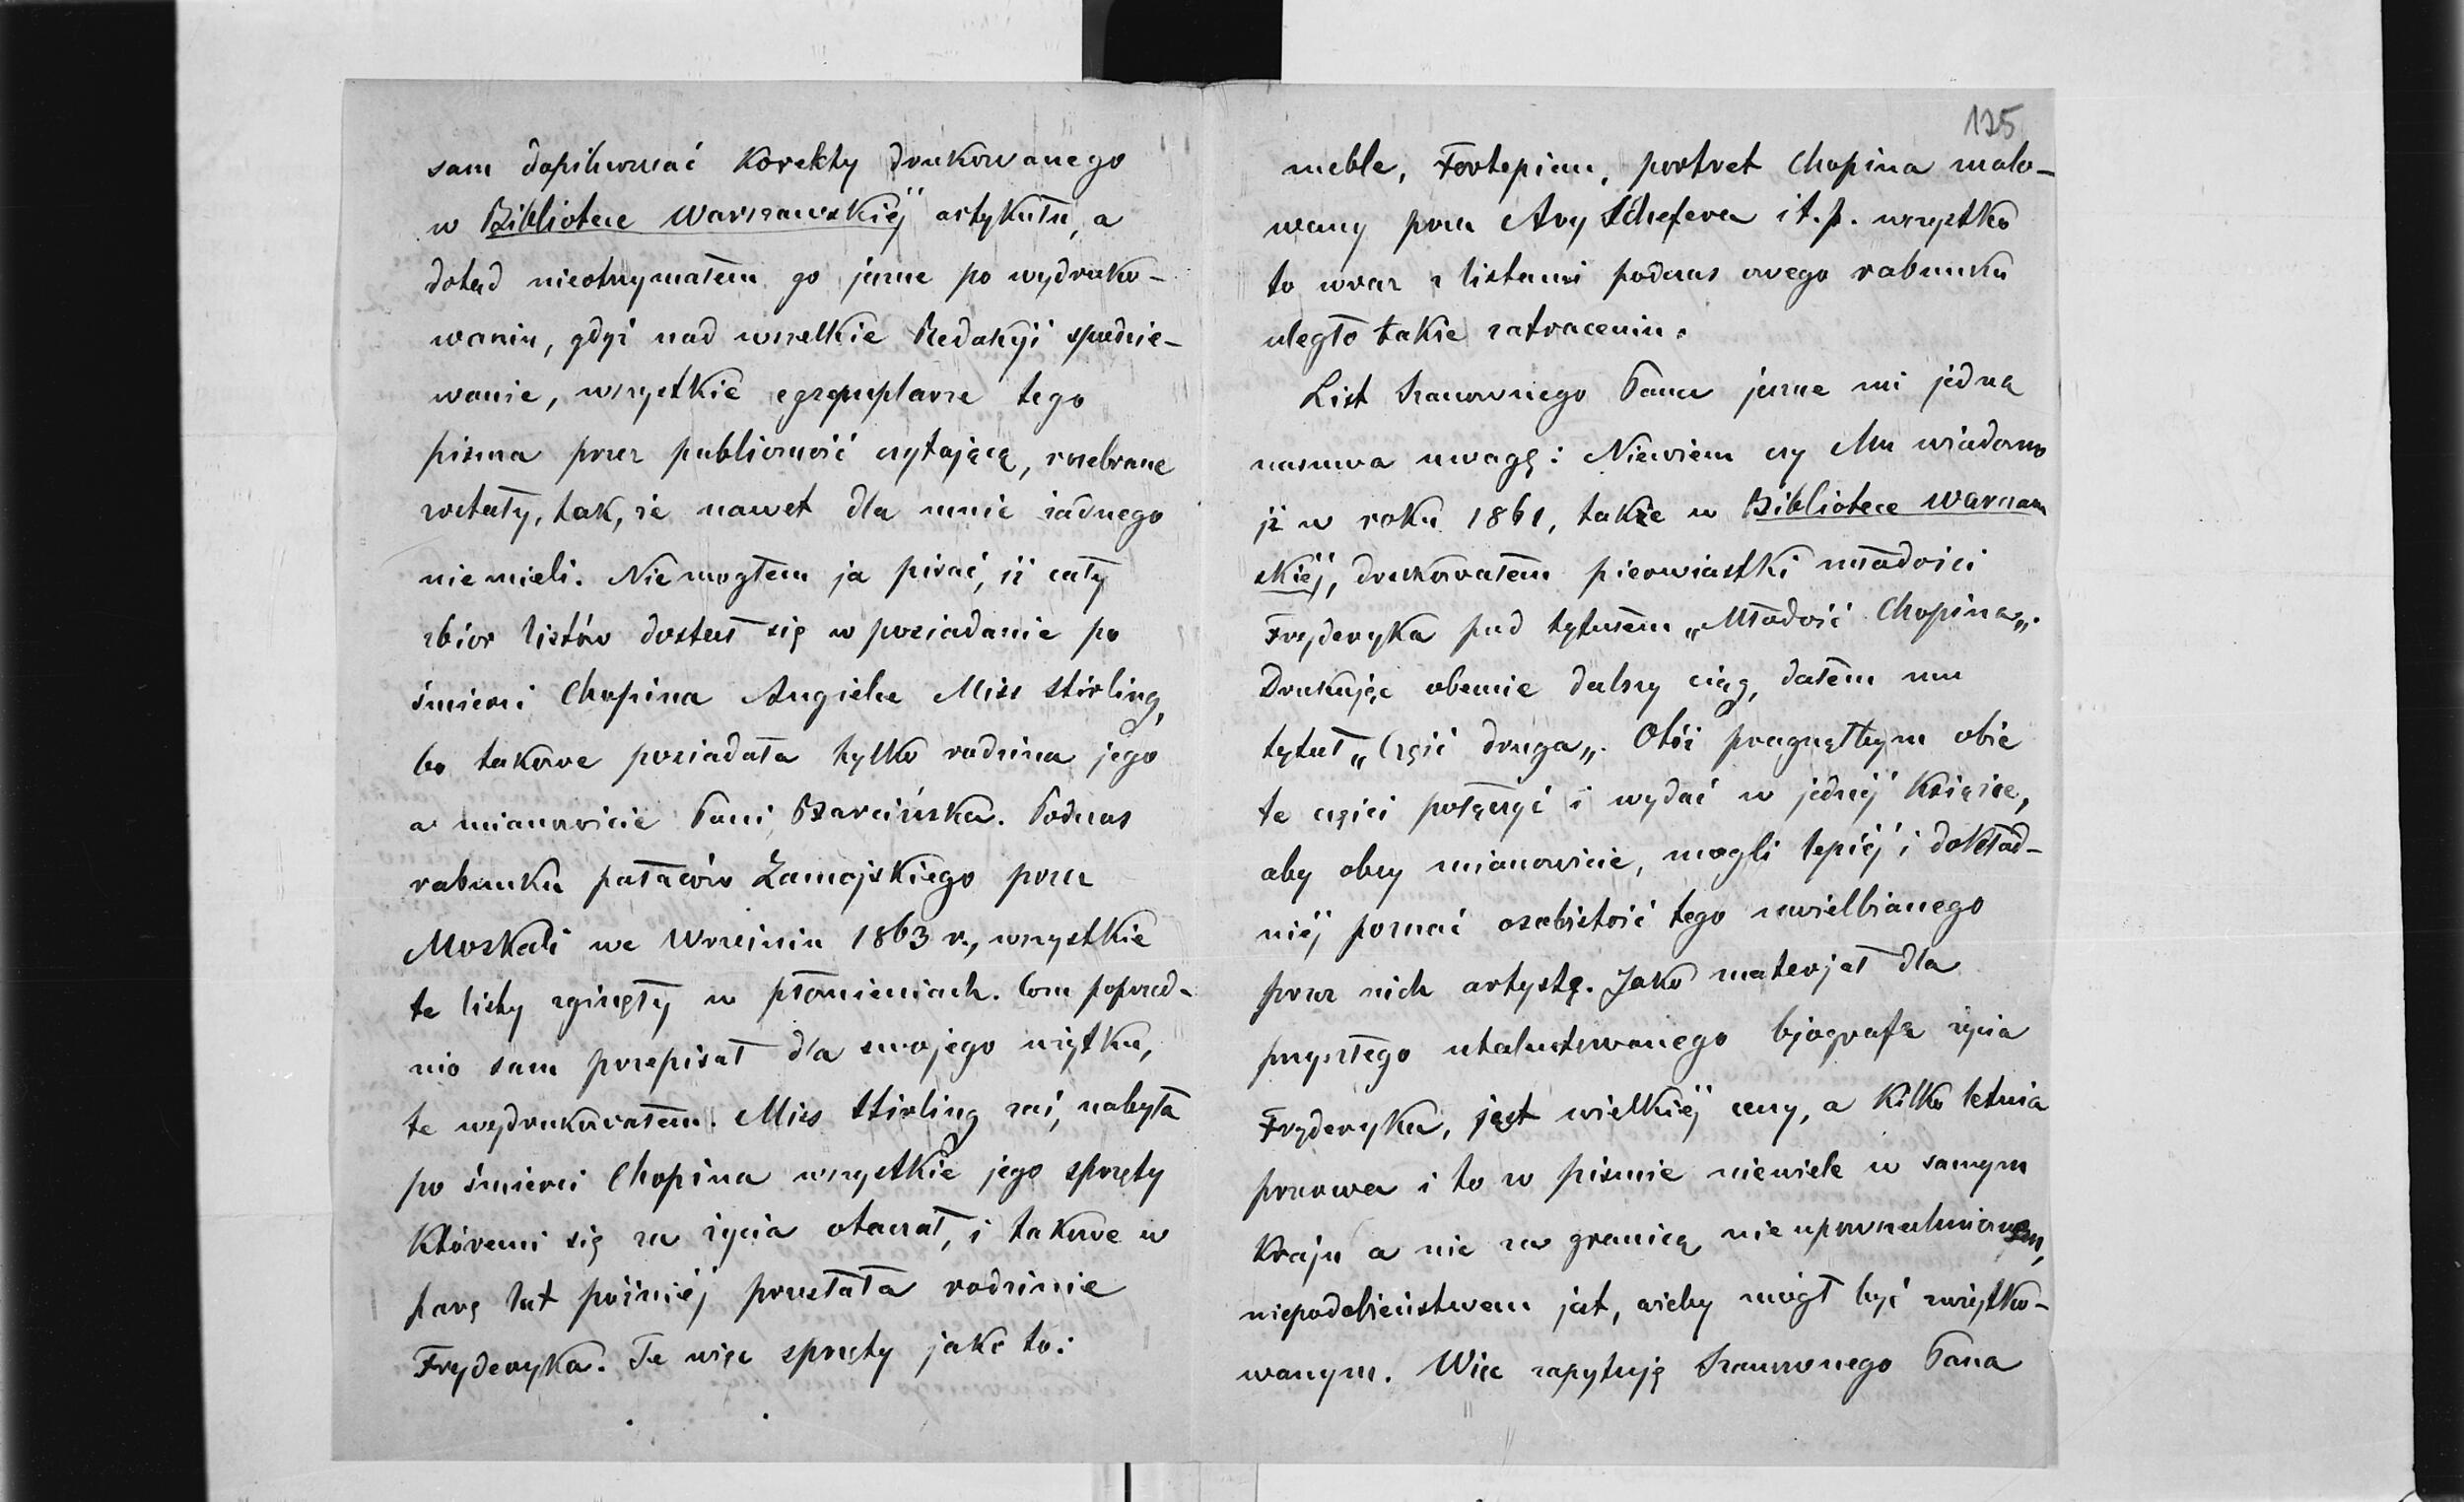 sam dopilnować Korekty drukowanego
w Bibliotece Warszawskiéj artykułu, a
dotąd nieotrzymałem go jeszcze po wydruko-
waniu, gdyż nad wszelkie Redakyi spodzie-
wanie, wszystkie egzemplarze tego
pisma przez publiczność czytającą, rozebrane
zostały, tak, że nawet dla mnie żadnego
nie mieli. Nie mogłem ja pisać, iż cały
zbior listów dostał się w posiadanie po
śmierci Chopina Angielce Miss Stirling,
bo takowe posiadała tylko rodzina jego
a mianowicie Pani Barcińska. Podczas
rabunku pałaców Zamojskiego przez
Moskali we Wrześniu 1863 r., wszystkie
te listy zginęły w płomieniach. Com poprzed-
nio sam przepisał dla swojego użytku,
te wydrukowałem. Miss Stirling zaś, nabyła
po śmierci Chopina wszystkie jego sprzęty
Któremi się za życia otaczał, i takowe w
parę lat późniéj przesłała rodzinie
Fryderyka. Te więc sprzęty jako to:
125
meble, Fortepian, portret Chopina malo-
wany przez Ary Scheffera i t.p. wszystko
to wraz z listami podczas owego rabunku
uległo także zatraceniu.
List Szanownego Pana jeszcze mi jedną
nasuwa uwagę: Niewiem czy Mu wiadomo
iż w roku 1861, także w Bibliotece Warszaw
skiéj, drukowałem pierwiastki młodości
Fryderyka pod tytułem „Młodość Chopina„.
Drukując obecnie dalszy ciąg, dałem mu
tytuł „Część druga„. Otóż pragnąłbym obie
te części połączyć i wydać w jednéj Książce,
aby obcy mianowicie, mogli lepiéj i dokład-
niéj poznać osobistość tego uwielbianego
przez nich artystę. Jako materjał dla
przyszłego utalentowanego bjografa życia
Fryderyka, jest wielkiéj ceny, a Kilko letnia
przerwa i to w piśmie niewiele w samym
Kraju a nie za granicą nie upowszechnionem,
niepodobieństwem jest, ażeby mógł być zużytko-
wanym. Więc zapytuję Szanownego Pana